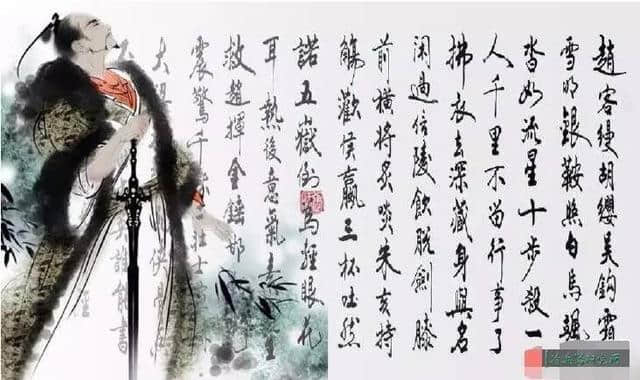 趙客縵胡纓吳鉤霜
雪明銀鞍照白馬颯
沓如流星十步殺一
人千里不留行事了
拂衣去深藏身與名
閑過信陵飲脫劍膝
前橫將炙啖朱亥持
觴歡侯嬴三杯吐然
諾五嶽倒為輕眼花
耳熱後意氣素生
救趙揮金錘邯
震驚千秋二壯士
大俠
誰能書